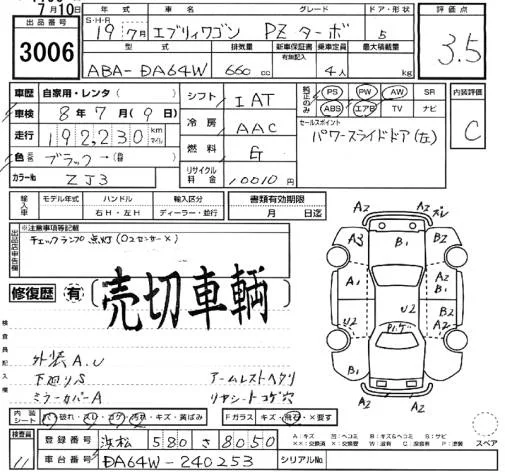 7月10日
出品番号
3006
年式 車名 グレード ドア・形状
S・H・R
19 7月 エブリィワゴン PZターボ 5
型式 排気量 新車保証書 有無記入 乗車定員 最大積載量
ABA-DA64W 660cc 4人 kg
評価点
3.5
車歴 自家用・レンタ
車検 8年7月(9日)
走行 192,230 km マイル
色 元色 ブラック→
カラーNo ZJ3
シフト IAT
冷房 AAC
燃料 G
リサイクル料金 10010円
純正のみ
PS PW AW SR
ABS エアB TV ナビ
セールスポイント
パワースライドドア(左)
内装評価
C
輸入車 モデル年式 ハンドル 輸入区分 書類有効期限
年 右H・左H ディーラー・並行 月 日迄
出品店申告欄
※注意事項等記載
チェックランプ点灯(O2センサー×)
修復歴 有
売切車輌
検査員記入欄
外装A.U
下廻りS アームレストヘタリ
ミラーカバーA リヤシートコゲ穴
A2 A2 A3 B1 B2 A1 B1 A2 U2 U2 A1 B2 B1 A2 A2
内装シート 破れ・スレ・コゲ・汚れ・キズ・黄ばみ Fガラス キズ・飛石・×要す
A:キズ U:凹ヘコミ B:キズ&ヘコミ S:サビ
スペア
検査員 11
登録番号 浜松 580 さ 8050
車台番号 DA64W-240253 シリアルNo.